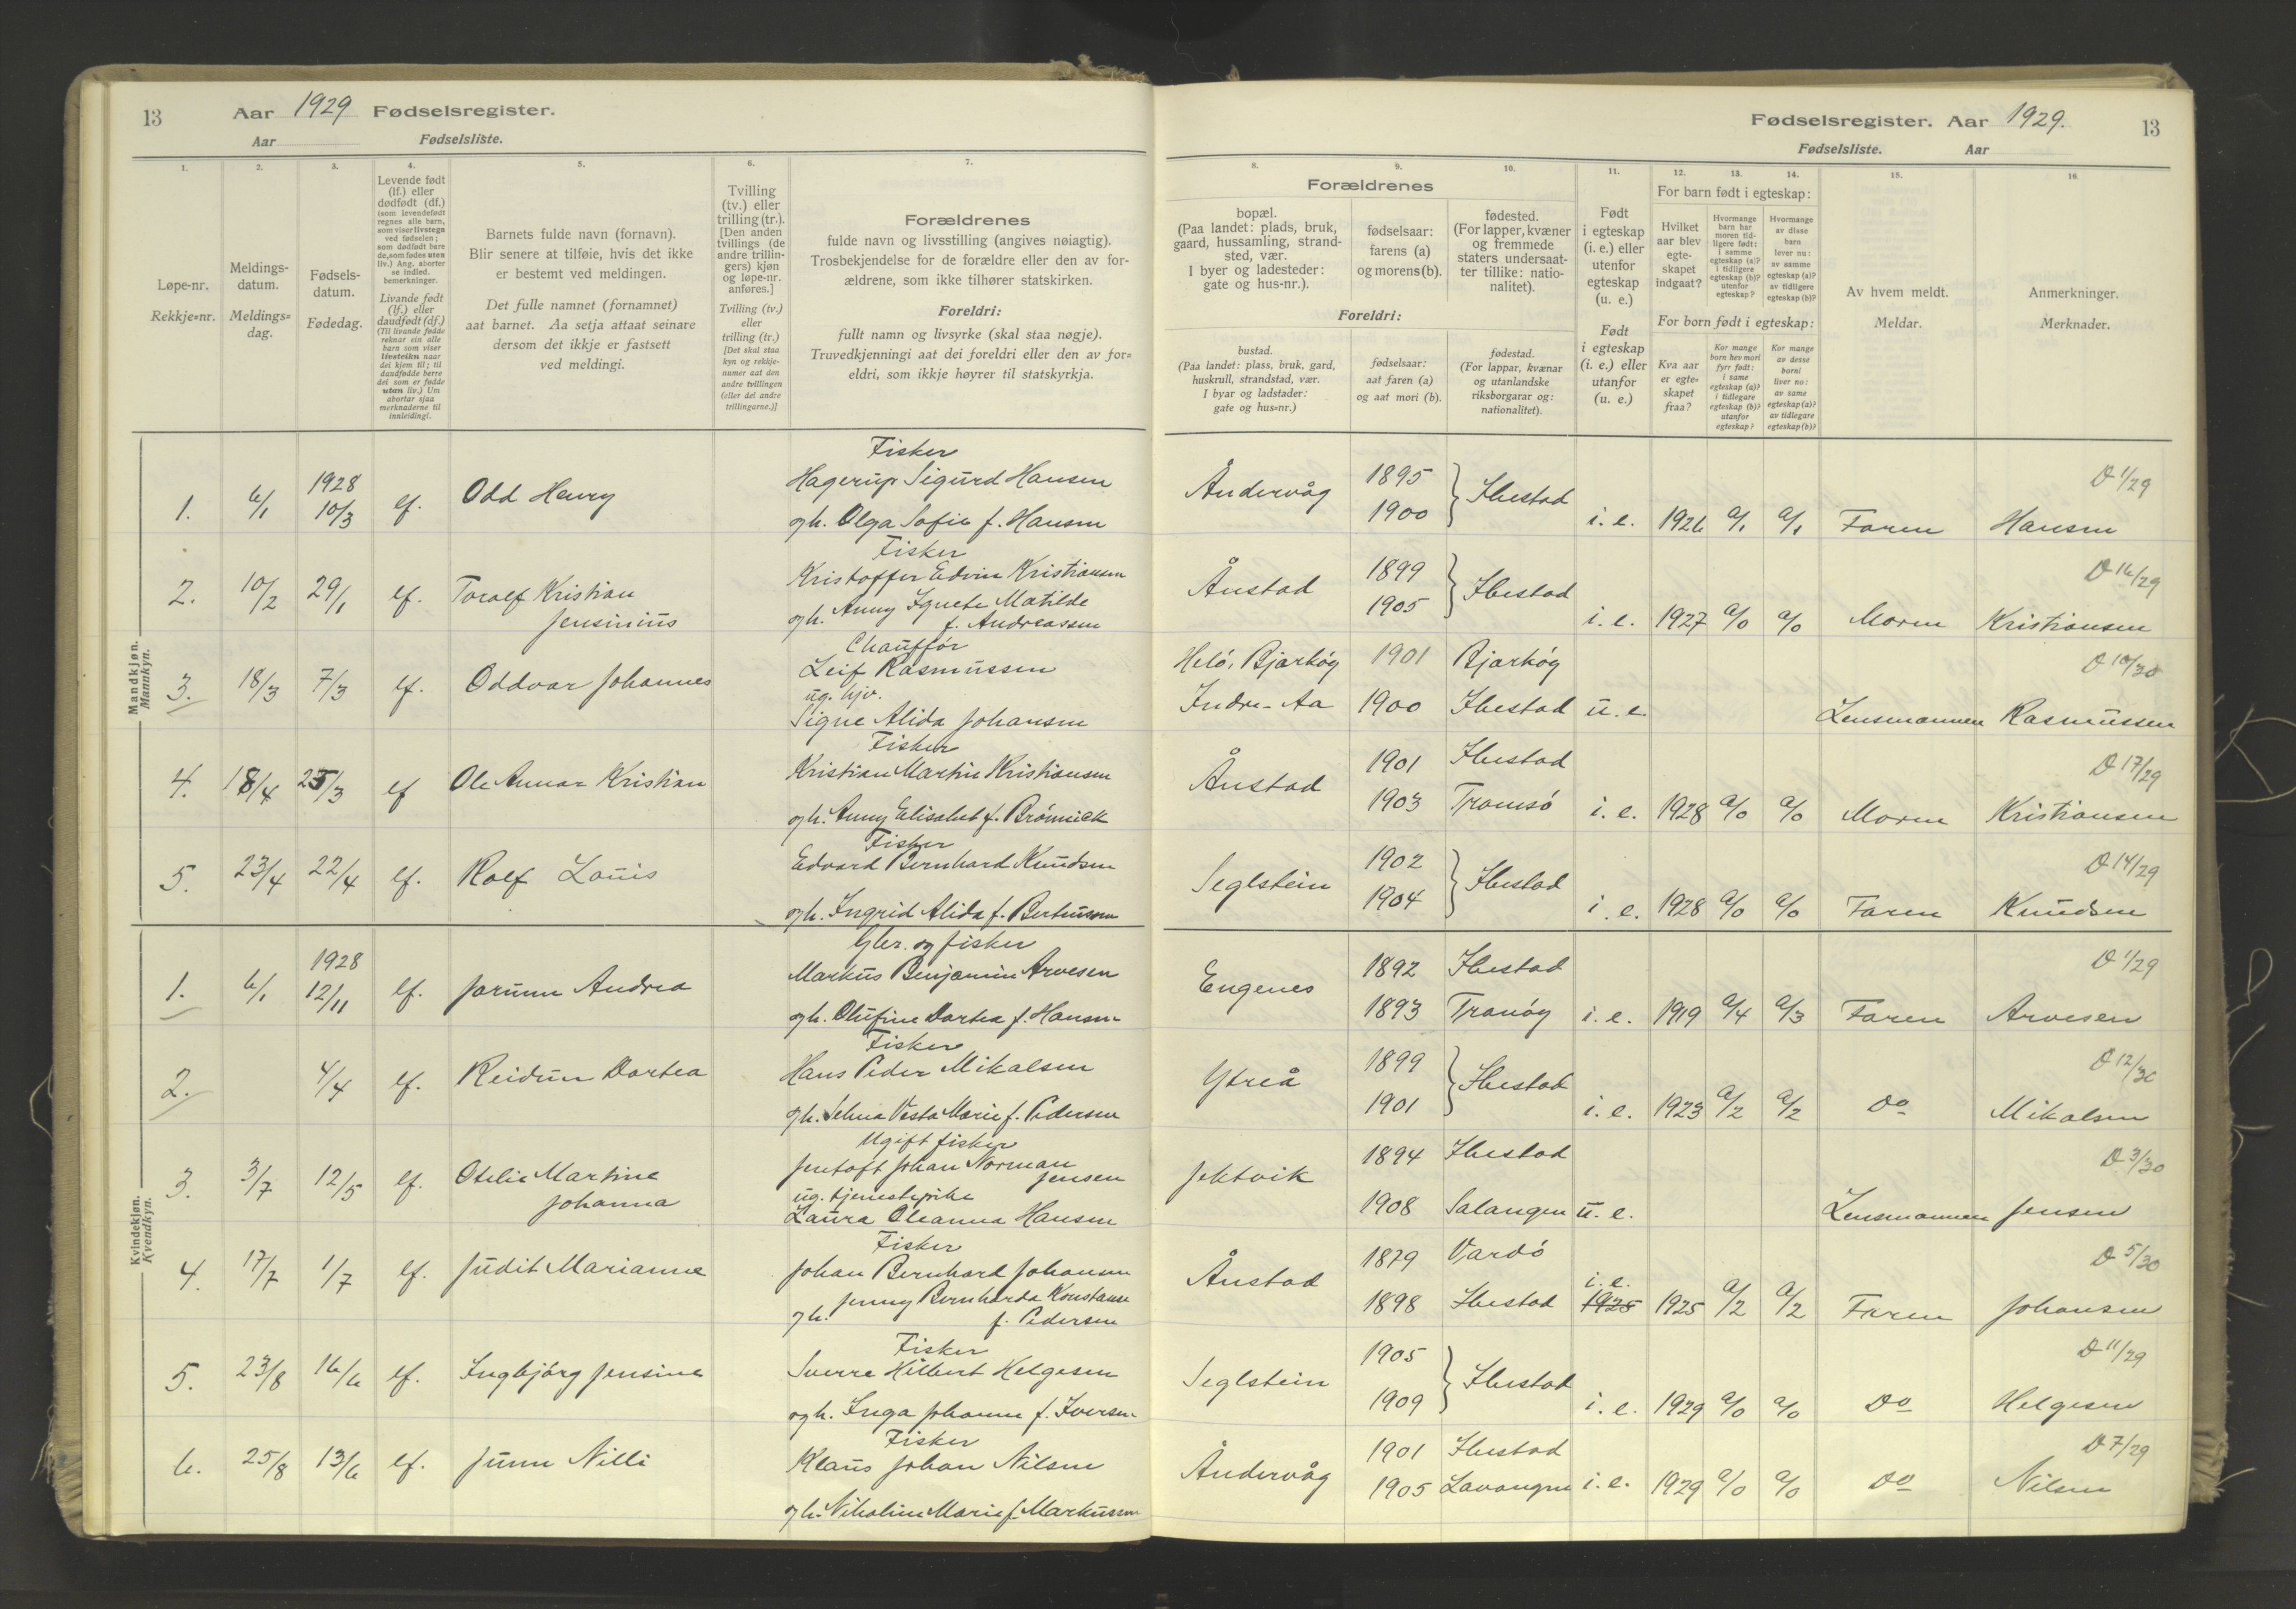 13 Aar 1929 Fødselsregister.
Aar Fødselsliste.
Fødselsregister. Aar 1929. 13
Fødselsliste. Aar
1. 2. 3. 4. 5. 6. 7.
Løpe-nr.
Rekkje=nr.
Meldings-
datum.
Meldings=
dag.
Fødsels-
datum.
Fødedag.
Levende født
(lf.) eller
dødfødt (df.)
(som levendefødt
regnes alle barn,
som viser livstegn
ved fødselen;
som dødfødt bare
de, som fødes uten
liv.) Ang. aborter
se indled.
bemerkninger.
Livande født
(lf.) eller
daudfødt (df.)
(Til livande fødde
reknar ein alle
barn som viser
livsteikn naar
dei kjem til; til
daudfødde berre
dei som er fødde
utan liv.) Um
abortar sjaa
merknaderne til
innleidingi.
Barnets fulde navn (fornavn).
Blir senere at tilføie, hvis det ikke
er bestemt ved meldingen.
Det fulle namnet (fornamnet)
aat barnet. Aa setja attaat seinare
dersom det ikkje er fastsett
ved meldingi.
Tvilling
(tv.) eller
trilling (tr.).
[Den anden
tvillings (de
andre trillin-
gers) kjøn
og løpe-nr.
anføres.]
Tvilling (tv.)
eller
trilling (tr.)
[Det skal staa
kyn og rekkje-
numer aat den
andre tvillingen
(eller dei andre
trillingarne.)]
Forældrenes
fulde navn og livsstilling (angives nøiagtig).
Trosbekjendelse for de forældre eller den av for-
ældrene, som ikke tilhører statskirken.
Foreldri:
fullt namn og livsyrke (skal staa nøgje).
Truvedkjenningi aat dei foreldri eller den av for=
eldri, som ikkje høyrer til statskyrkja.
8. 9. 10. 11. 12. 13. 14. 15. 16.
Forældrenes
bopæl.
(Paa landet: plads, bruk,
gaard, hussamling, strand-
sted, vær.
I byer og ladesteder:
gate og hus-nr.).
fødselsaar:
farens (a)
og morens (b).
fødested.
(For lapper, kvæner
og fremmede
staters undersaat-
ter tillike: natio-
nalitet).
Foreldri:
bustad.
(Paa landet: plass, bruk, gard,
huskrull, strandstad, vær.
I byar og ladstader:
gate og hus=nr.)
fødselsaar:
aat faren (a)
og aat mori (b).
fødestad.
(For lappar, kvænar
og utanlandske
riksborgarar og:
nationalitet).
Født
i egteskap
(i. e.) eller
utenfor
egteskap
(u. e.)
Født
i egteskap
(i. e.) eller
utanfor
(u. e.)
For barn født i egteskap:
Hvilket
aar blev
egte-
skapet
indgaat?
Hvormange
barn har
moren tid-
ligere født:
i samme
egteskap (a)?
i tidligere
egteskap (b)?
utenfor
egteskap?
Hvormange
av disse
barn
lever nu:
av samme
egteskap (a)?
av tidligere
egteskap (b)?
For born født i egteskap:
Kva aar
er egte=
skapet
fraa?
Kor mange
born hev mori
fyrr født:
i same
egteskap (a)?
i tidlegare
egteskap (b)?
utanfor
egteskap?
Kor mange
av desse
borni
liver no:
av same
egteskap (a)?
av tidlegare
egteskap (b)?
Av hvem meldt.
Meldar.
Anmerkninger.
Merknader.
Mandkjøn.
Mannkyn.
Fisker
1. 6/1 1928 10/3 lf. Odd Henry Hagerup Sigurd Hansen Åndervåg 1895 Ibestad D 1/29
og h. Olga Sofie f. Hansen 1900 i. e. 1926 a/1 a/1 Faren Hansen
Fisker
2. 10/2 29/1 lf. Toralf Kristian Kristoffer Edvin Kristiansen Ånstad 1899 Ibestad D 16/29
Jensinius og h. Anny Agnete Matilde 1905 i. e. 1927 a/0 a/0 Moren Kristiansen
f. Andreassen
Chauffør
3. 18/3 7/3 lf. Oddvar Johannes Leif Rasmussen Helö, Bjarköy 1901 Bjarköy D 10/30
ug. hjv.
Signe Alida Johansen Indre-Aa 1900 Ibestad u. e. Lensmannen Rasmussen
Fisker
4. 18/4 25/3 lf Ole Annar Kristian Kristian Martin Kristiansen Ånstad 1901 Ibestad D 17/29
og h. Anny Elisabet f. Brönnick 1903 Tromsö i. e. 1928 a/0 a/0 Moren Kristiansen
Fisker
5. 23/4 22/4 lf. Rolf Louis Edvard Bernhard Knudsen Seglstein 1902 Ibestad D 14/29
og h. Ingrid Alida f. Berteussen 1904 i. e. 1928 a/0 a/0 Faren Knudsen
Kvindekjøn.
Kvendkyn.
Gbr. og fisker
1. 6/1 1928 12/11 lf. Jorunn Andrea Markus Benjamin Arvesen Engenes 1892 Ibestad D 1/29
og h. Olufine Dortea f. Hansen 1893 Tranöy i. e. 1919 a/4 a/3 Faren Arvesen
Fisker
2. 4/4 lf. Reidun Dortea Hans Peder Mikalsen Ytreå 1899 Ibestad D 12/30
og h. Selma Vesta Marie f. Pedersen 1901 i. e. 1923 a/2 a/2 Do Mikalsen
Ugift fisker
3. 3/7 12/5 lf. Otelie Martine Jentoft Johan Norman Jektvik 1894 Ibestad D 3/30
Johanna Jensen
ug. tjenestepike
Laura Oleanna Hansen 1908 Salangen u. e. Lensmannen Jensen
Fisker
4. 17/7 1/7 lf. Judit Marianne Johan Bernhard Johansen Ånstad 1879 Vardö D 5/30
og h. Jenny Bernharda Konstanse 1898 Ibestad i. e. 1925 1925 a/2 a/2 Faren Johansen
f. Pedersen
Fisker
5. 23/8 16/6 lf. Ingbjörg Jensine Sverre Hilbert Helgesen Seglstein 1905 Ibestad D 11/29
og h. Inga Johanne f. Iversen 1909 i. e. 1929 a/0 a/0 Do Helgesen
Fisker
6. 25/8 13/6 lf. Junn Nilli Klaus Johan Nilsen Åndervåg 1901 Ibestad D 7/29
og h. Nikoline Marie f. Markussen 1905 Lavangen i. e. 1929 a/0 a/0 Do Nilsen